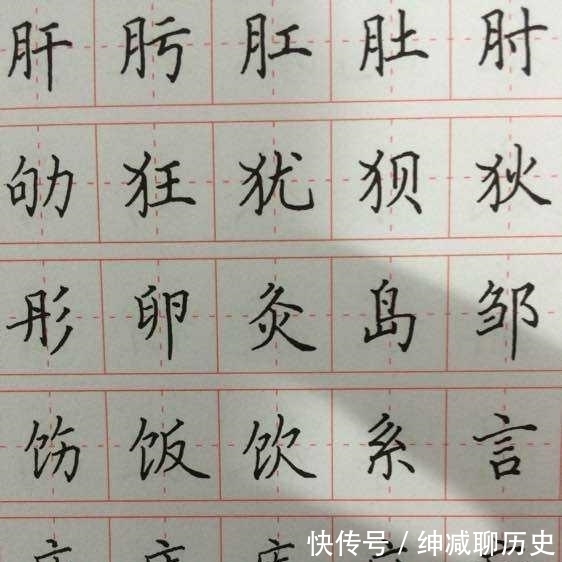 肝肟肛肚肘
劬狂犹狈狄
彤卵灸岛邹
饬饭饮系言
快传号 / 绅减聊历史